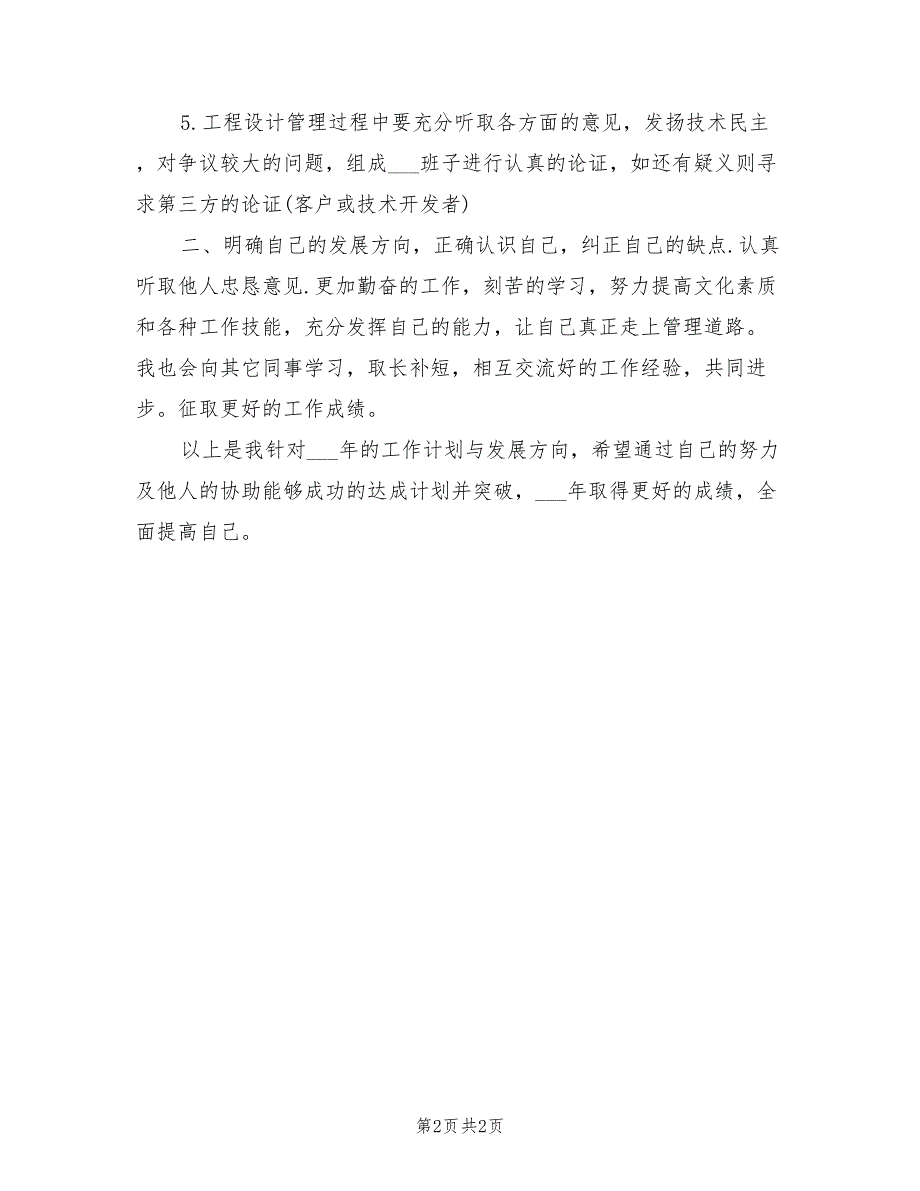 5.工程设计管理过程中要充分听取各方面的意见，发扬技术民主
，对争议较大的问题，组成___班子进行认真的论证，如还有疑义则寻
求第三方的论证(客户或技术开发者)
二、明确自己的发展方向，正确认识自己，纠正自己的缺点.认真
听取他人忠恳意见.更加勤奋的工作，刻苦的学习，努力提高文化素质
和各种工作技能，充分发挥自己的能力，让自己真正走上管理道路。
我也会向其它同事学习，取长补短，相互交流好的工作经验，共同进
步。征取更好的工作成绩。
以上是我针对___年的工作计划与发展方向，希望通过自己的努力
及他人的协助能够成功的达成计划并突破，___年取得更好的成绩，全
面提高自己。
第2页 共2页